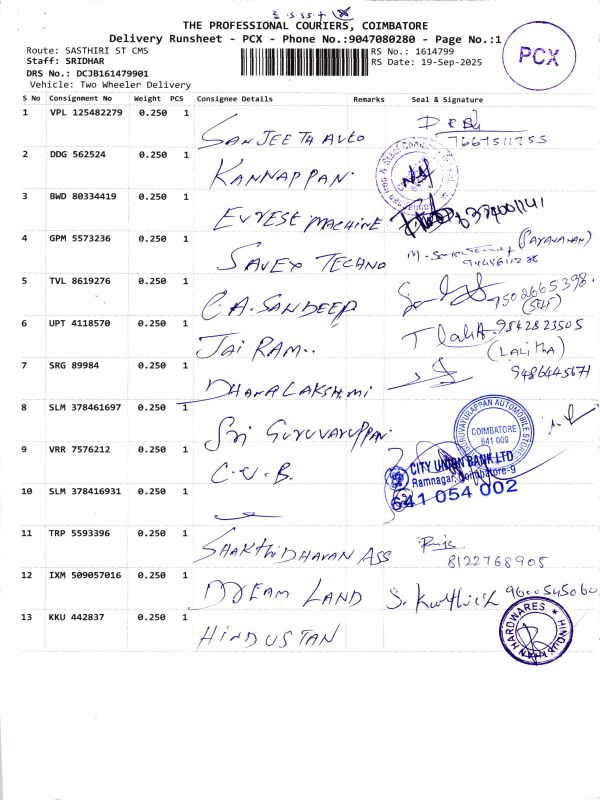 THE PROFESSIONAL COURIERS, COIMBATORE
Delivery Runsheet - PCX - Phone No.:9047080280 - Page No.:1
Route: SASTHIRI ST CMS
RS No.: 1614799
Staff: SRIDHAR
RS Date: 19-Sep-2025
DRS No.: DCJB161479901
Vehicle: Two Wheeler Delivery
PCX
S No Consignment No Weight PCS Consignee Details Remarks Seal & Signature
1 VPL 125482279 0.250 1 SANJEETH AUTO
7667511755
2 DDG 562524 0.250 1 KANNAPPAN
3 BWD 80334419 0.250 1 EVREST MACHINE
4 GPM 5573236 0.250 1 SAVEX TECHNO
(SARAVANAN)
5 TVL 8619276 0.250 1 C.A. SANDEEP
7502665398
6 UPT 4118570 0.250 1 JAI RAM
T Lalitha 9542823505
(LALITHA)
7 SRG 89984 0.250 1 DHANALAKSHMI
9486445671
8 SLM 378461697 0.250 1 Sri GURUVAYURPPAN
GURUVAYURAPPAN AUTOMOBILE STORES
COIMBATORE
641 009
9 VRR 7576212 0.250 1 C.U.B.
CITY UNION BANK LTD
Ramnagar, Coimbatore-9
641 054 002
10 SLM 378416931 0.250 1
11 TRP 5593396 0.250 1 SHAKTHI DHAVAN ASS
8122768905
12 IXM 509057016 0.250 1 DREAM LAND
S. Karthick 9600545060
13 KKU 442837 0.250 1 HINDUSTAN
HINDUSTHAN HARDWARES